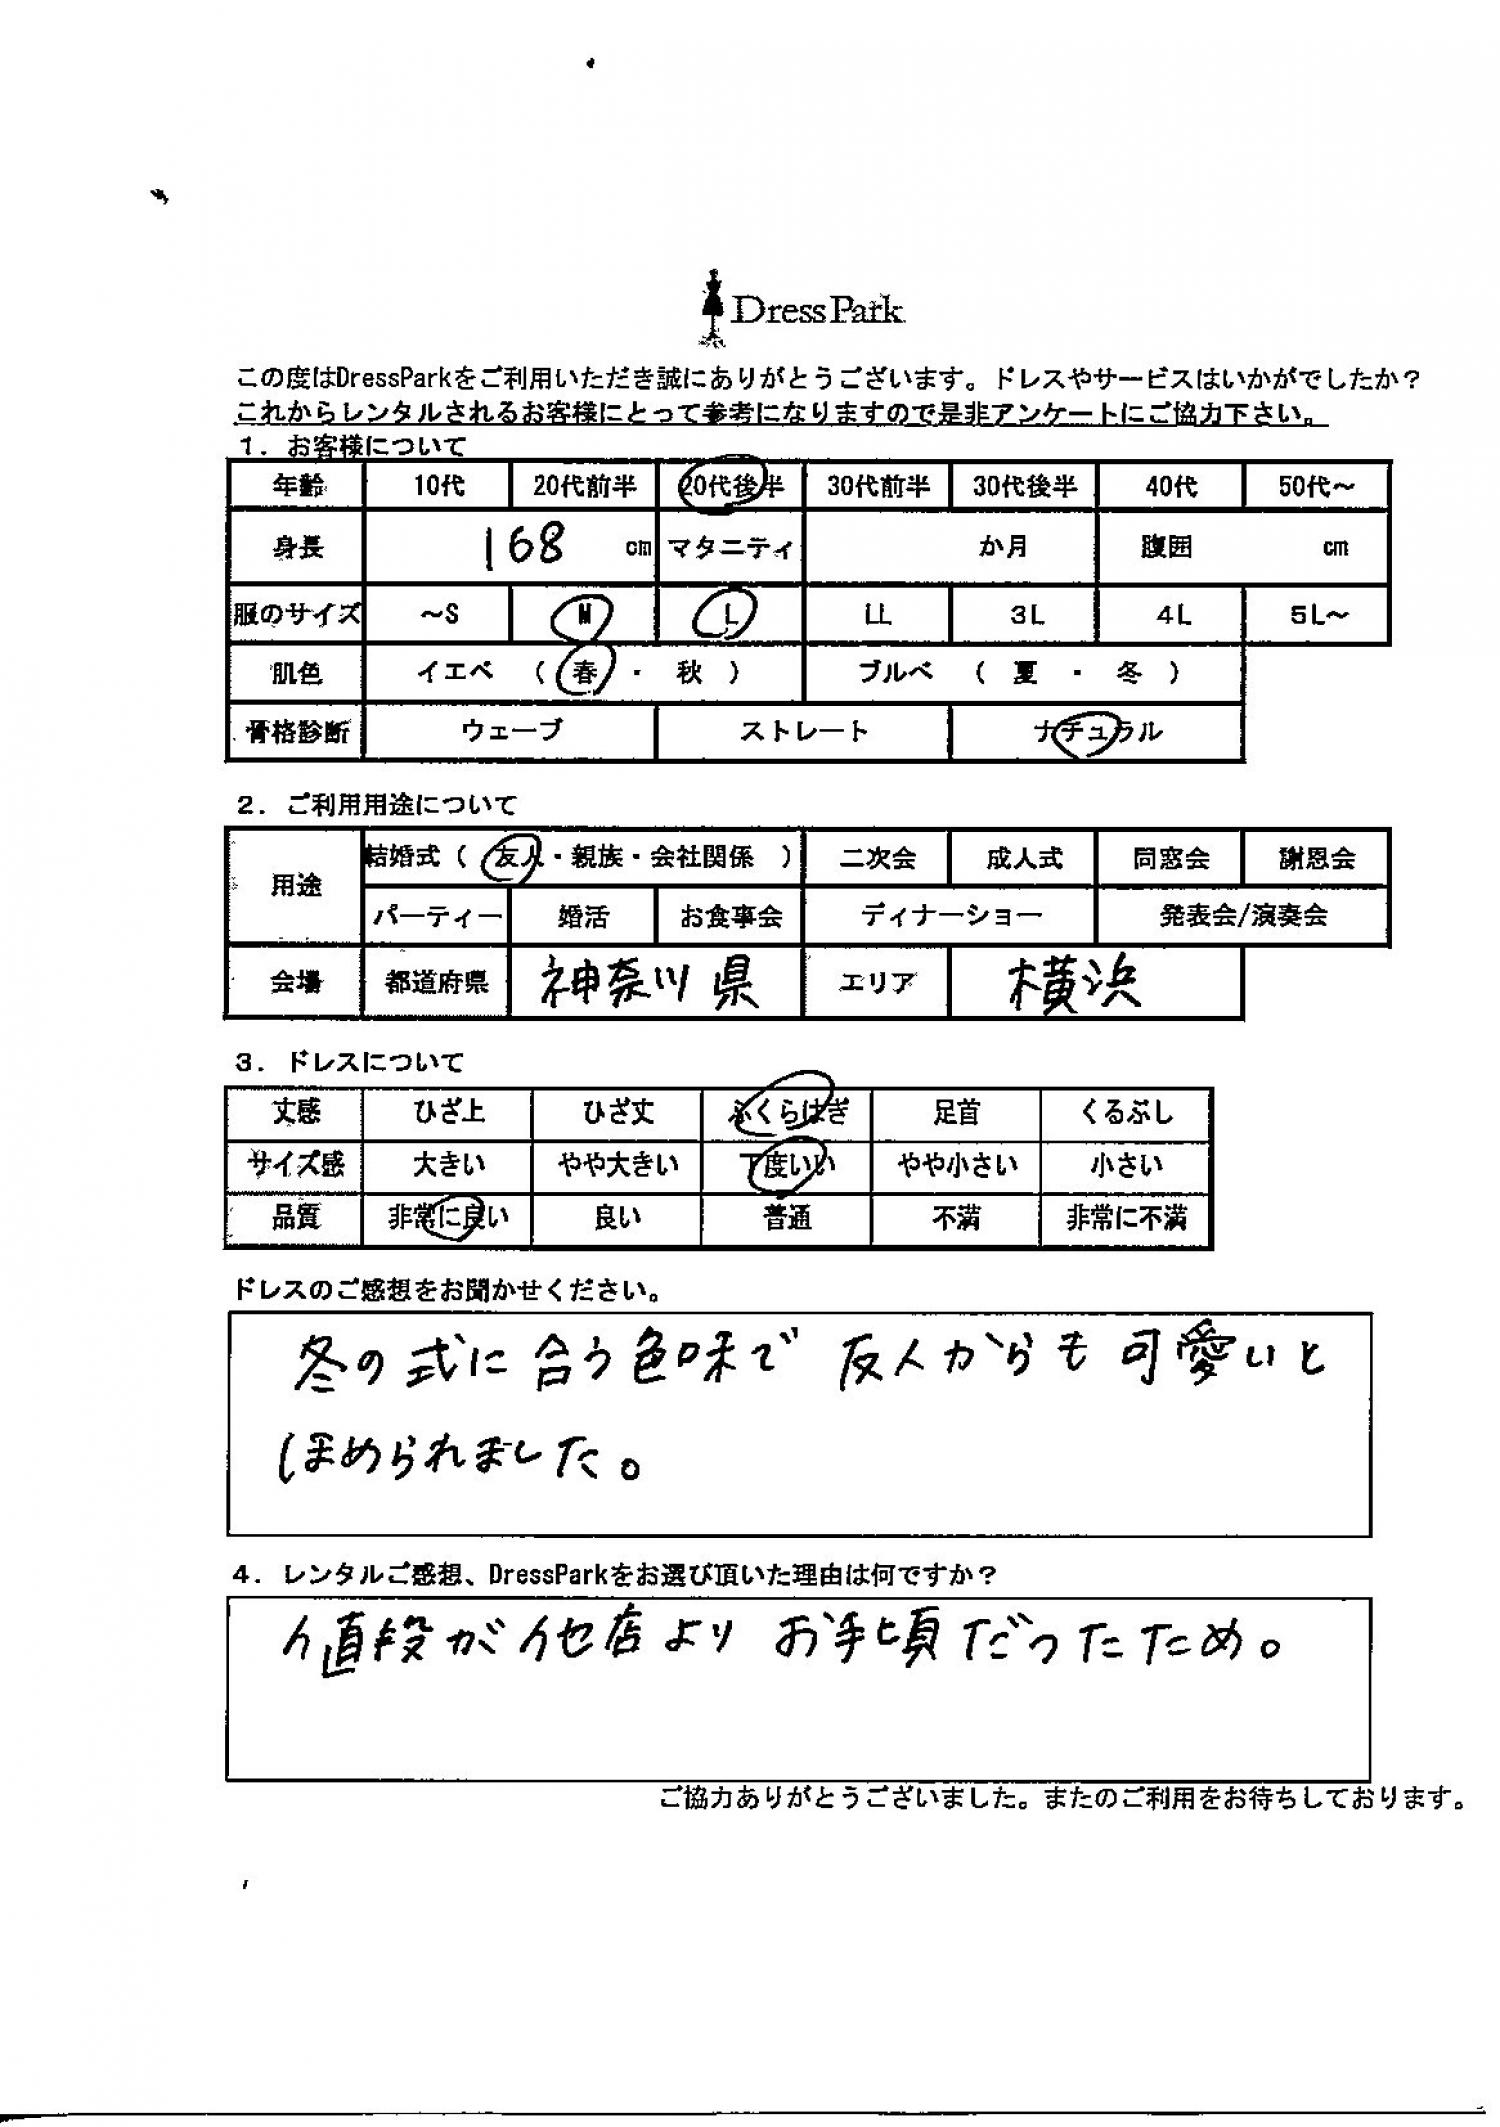 DressPark
この度はDressParkをご利用いただき誠にありがとうございます。ドレスやサービスはいかがでしたか？
これからレンタルされるお客様にとって参考になりますので是非アンケートにご協力下さい。
１．お客様について
年齢 10代 20代前半 20代後半 30代前半 30代後半 40代 50代～
身長 168 cm マタニティ か月 腹囲 cm
服のサイズ ～S M L LL 3L 4L 5L～
肌色 イエベ （ 春 ・ 秋 ） ブルベ （ 夏 ・ 冬 ）
骨格診断 ウェーブ ストレート ナチュラル
２．ご利用用途について
用途 結婚式（ 友人・親族・会社関係 ） 二次会 成人式 同窓会 謝恩会
パーティー 婚活 お食事会 ディナーショー 発表会/演奏会
会場 都道府県 神奈川県 エリア 横浜
３．ドレスについて
丈感 ひざ上 ひざ丈 ふくらはぎ 足首 くるぶし
サイズ感 大きい やや大きい 丁度いい やや小さい 小さい
品質 非常に良い 良い 普通 不満 非常に不満
ドレスのご感想をお聞かせください。
冬の式に合う色味で 友人からも可愛いと
ほめられました。
４．レンタルご感想、DressParkをお選び頂いた理由は何ですか？
値段が他店より お手頃だったため。
ご協力ありがとうございました。またのご利用をお待ちしております。